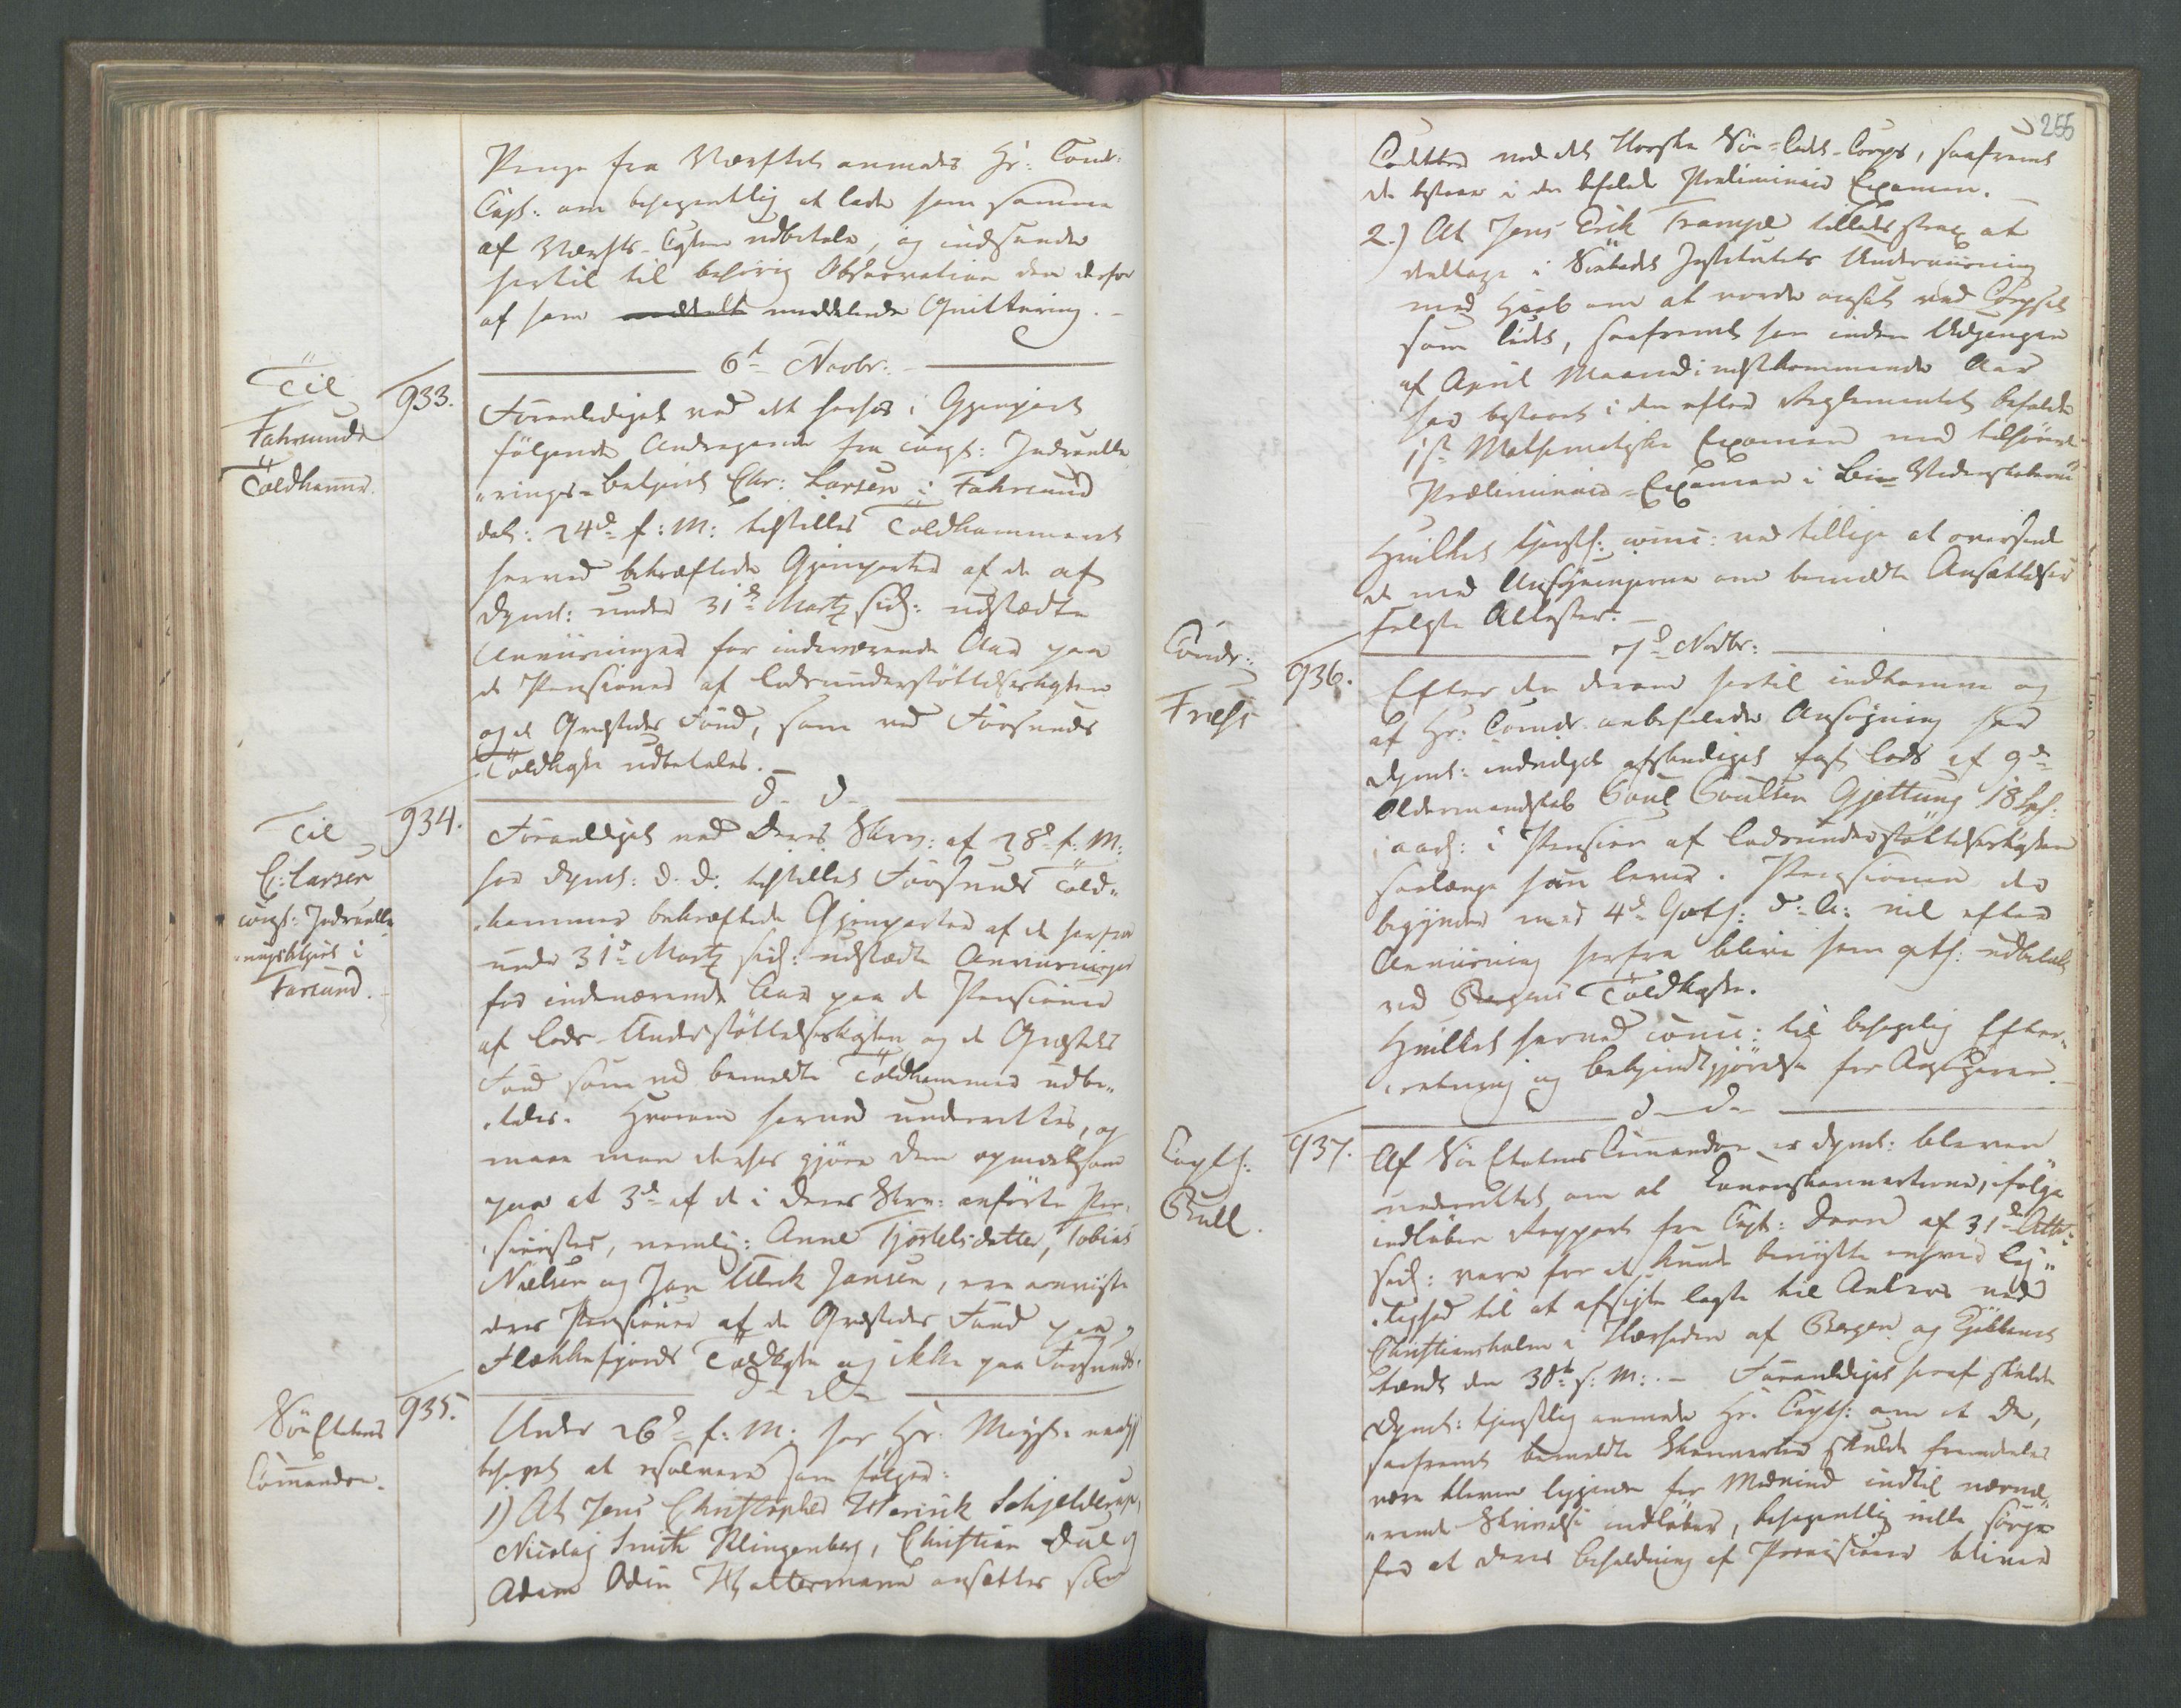 Penge fra Værftet anmodes Hr: Comd:
Capt: om behagentlig at lade ham samme
af Værfts-Cassen udbetale, og indsende
hertil til behørig Observation den derfor
af ham meddelende Qvittering. -
6d Novbr: -
Til
Fahrsunds
Toldkammer.
933.
Foranlediget ved det herhos i Gjenpart
følgende Andragende fra const: Indroulle-
rings-Betjent Chr: Larsen i Fahrsund
dat: 24d f: M: tilstilles Toldkammeret
herved bekræftede Gjenparter af de af
Dpmt: under 31d Martz sidst: udstædte
Anviisninger for indeværende Aar paa
de Pensioner af Lodsunderstøttelseskassen
og de Qvæstedes Fond, som ved Farsunds
Toldkasse udbetales. -
d - d -
Til
C: Larsen
const: Indroulle-
ringsbetjent i
Farsund. -
934.
Foranlediget ved Deres Skriv: af 28d f: M:
har Dpmt: d. d. tilstillet Farsunds Told-
kammer bekræftede Gjenparter af de herfra
under 31d Martz sidst: udstædte Anviisninger
for indeværende Aar paa de Pensioner
af Lods-Understøttelseskassen og de Qvæstedes
Fond som ved bemeldte Toldkammer udbe-
tales. Hvorom herved underrettes, og
maae man derhos gjøre Dem opmærksom
paa at 3de af de i Deres Skriv: anførte Pen-
sionister, nemlig: Anne Tjostelsdatter, Tobias
Nielsen og Jan Ulrik Jansen, ere anviiste
deres Pensioner af de Qvæstedes Fond paa
Flekkefjords Toldkasse og ikke paa Farsunds.
d - d -
Søe Etatens
Commando.
935.
Under 26d f: M: har Hs: Majst: naadigst
behaget at resolvere som følger:
1) At Jens Christopher Werück Schjelderup,
Nicolay Smith Klingenberg, Christian Due og
Adam Odin Wattermann ansættes som
255
Cadetter ved det Norske Søe-Cadet-Corps, saafremt
de bestaae i den befalede Preliminair Examen. -
2.) At Jens Erik Trampe tillades strax at
deltage i Søecadet Institutets Underviisning
med Haab om at vorde ansat ved Corpset
som Cadet, saafremt han inden Udgangen
af April Maaned i næstkommende Aar
har bestaaet i den efter Reglementet befalede
1ste Mathematiske Examen med tilhørende
Præliminair-Examen i Bie-Videnskaberne
Hvilket tjenstl: comm: ved tillige at oversende
de med Ansøgningerne om bemeldte Ansættelser
fulgte Attester. -
7d Novbr:
Comdr:
Friess
936.
Efter den derom hertil indkomne og
af Hr: Comdr. anbefalede Ansøgning har
Dpmt: indvilget afskediget fast Lods af 9de
Oldermandskab Poul Poulsen Gjettung 18 Spd:
aarl: i Pension af Lodsunderstøttelseskassen
saalænge han lever. Pensionen der
begynder med 4de Qvart: d: A: vil efter
Anviisning herfra blive ham qvart: udbetalt
ved Bergens Toldkasse.
Hvilket herved comm: til behagelig Efter-
retning og Bekjendtgjørelse for Ansøgeren. -
d - d -
Captl:
Bull.
937.
Af Søe Etatens Commando er Dpmt: bleven
underrettet om at Kanonskonnerterne, ifølge
indløben Rapport fra Capt: Dorn af 31d Octb:
sidst: vare for at kunde benytte enhver Lej-
lighed til at afsejle lagte til Ankers ved
Christiansholm i Nærheden af Bergen og Kjøkkenet
tændt den 30te s: M: - Foranlediget heraf skulde
Dpmt: tjenstlig anmode Hr. Captl: om at De,
saafremt bemeldte Skonnerter skulde fremdeles
være bleven liggende for Modvind indtil nærvæ-
rende Skrivelse indløber, behagentlig ville sørge
for at deres Beholdning af Provisioner bliver